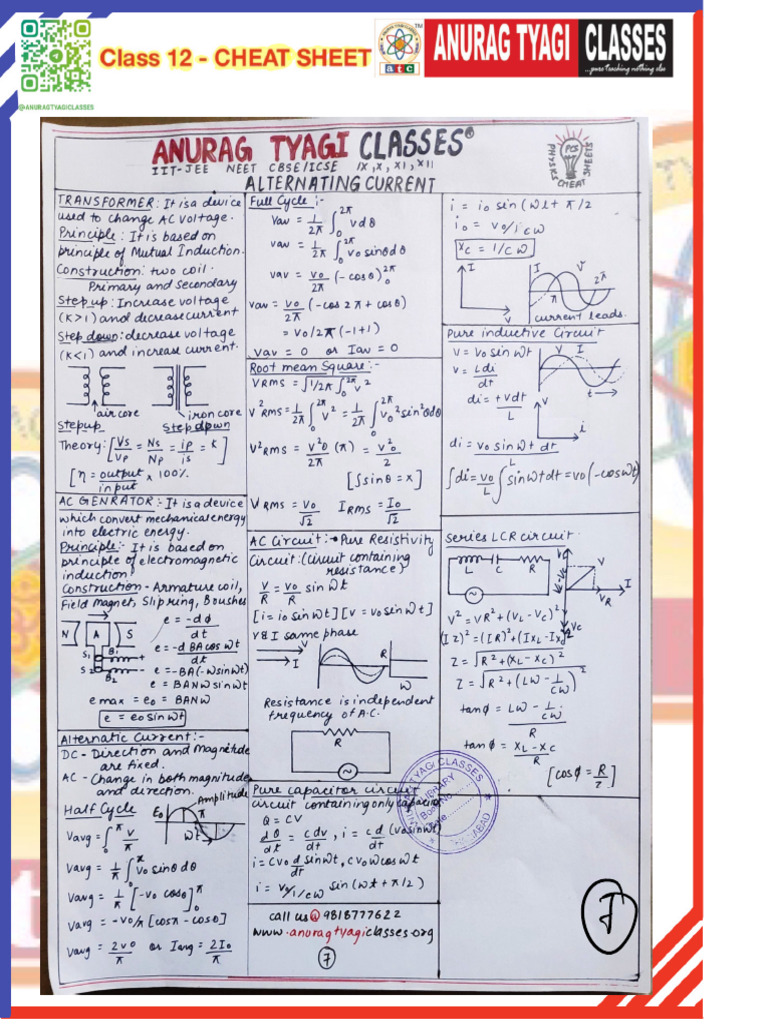 Class 12 - CHEAT SHEET
ANURAG TYAGI CLASSES
...pure teaching nothing else
atc
TM
@ANURAGTYAGICLASSES
ANURAG TYAGI CLASSES
IIT-JEE NEET CBSE/ICSE IX, X, XI, XII
ALTERNATING CURRENT
PHYSICS CHEAT SHEETS
PCS
TRANSFORMER: It is a device
used to change AC voltage.
Principle: It is based on
principle of Mutual Induction.
Construction: two coil.
Primary and Secondary
Step up: Increase voltage
(K>1) and decrease current
Step down: decrease voltage
(K<1) and increase current.
air core
iron core
Step up
Step down
Theory: [Vs/Vp = Ns/Np = ip/is = K]
[η = output/input × 100%
AC GENRATOR:- It is a device
which convert mechanical energy
into electric energy.
Principle:- It is based on
principle of electromagnetic
induction
Construction - Armature coil,
Field Magnet, Slip ring, Boushes
N A S
S1 B1
S2 B2
e = -dφ/dt
e = -d BA cos wt/dt
e = -BA(-w sin wt)
e = BANW sin wt
e max = e0 = BANW
e = e0 sin wt
Alternatic Current:-
DC - Direction and Magnitude
are fixed.
AC - Change in both magnitude
and direction.
Half Cycle
Amplitude
E0
π
wt
Vavg = ∫0^π V/π
Vavg = 1/π ∫0^π V0 sinθ dθ
Vavg = 1/π [-V0 cosθ]0^π
Vavg = -V0/π [cosπ - cos0]
Vavg = 2V0/π or Iavg = 2I0/π
Full Cycle:-
Vav = 1/2π ∫0^2π V dθ
Vav = 1/2π ∫0^2π V0 sinθ dθ
Vav = V0/2π (-cosθ)0^2π
Vav = V0/2π (-cos 2π + cosθ)
= V0/2π (-1+1)
Vav = 0 or Iav = 0
Root mean Square:-
VRMS = √1/2π ∫0^2π V²
V²RMS = 1/2π ∫0^2π V² = 1/2π ∫0^2π V0² sin²θ dθ
V²RMS = V²0/2π (π) = V²0/2
[∫sinθ = π]
VRMS = V0/√2 IRMS = I0/√2
AC Circuit:- Pure Resistivity
Circuit: (Circuit containing
resistance)
V/R = V0/R sin wt
[i = i0 sin wt] [V = V0 sin wt]
V & I same phase
V
I
R
W
Resistance is independent
frequency of A.C.
R
Pure capacitor circuit
circuit containing only capacitor
Q = CV
dQ/dt = c dv/dt, i = c d/dt (V0 sin wt)
i = CV0 d/dt sin wt, CV0 w cos wt
i = V0/1/cw sin (wt + π/2)
call us @ 9818777622
www.anuragtyagiclasses.org
7
i = i0 sin (wt + π/2
i0 = V0/1/cw
Xc = 1/cw
I
V
I V
π
2π
current leads.
Pure inductive Circuit
V = V0 sin wt
V = L di/dt
di = + V dt/L
V I
t
V
i
di = V0 sin wt + dt/L
∫di = V0/L ∫sin wt dt = V0 (-cos wt)
Series LCR circuit
L C R
VL - VC
V
I
VR
VC
V² = VR² + (VL - VC)²
(IZ)² = (IR)² + (IXL - IXC)²
Z = √R² + (XL - XC)²
Z = √R² + (LW - 1/CW)²
tanφ = LW - 1/CW/R
tanφ = XL - XC/R
[cosφ = R/Z]
TYAGI CLASSES
LIBRARY
Book No.
Date
7